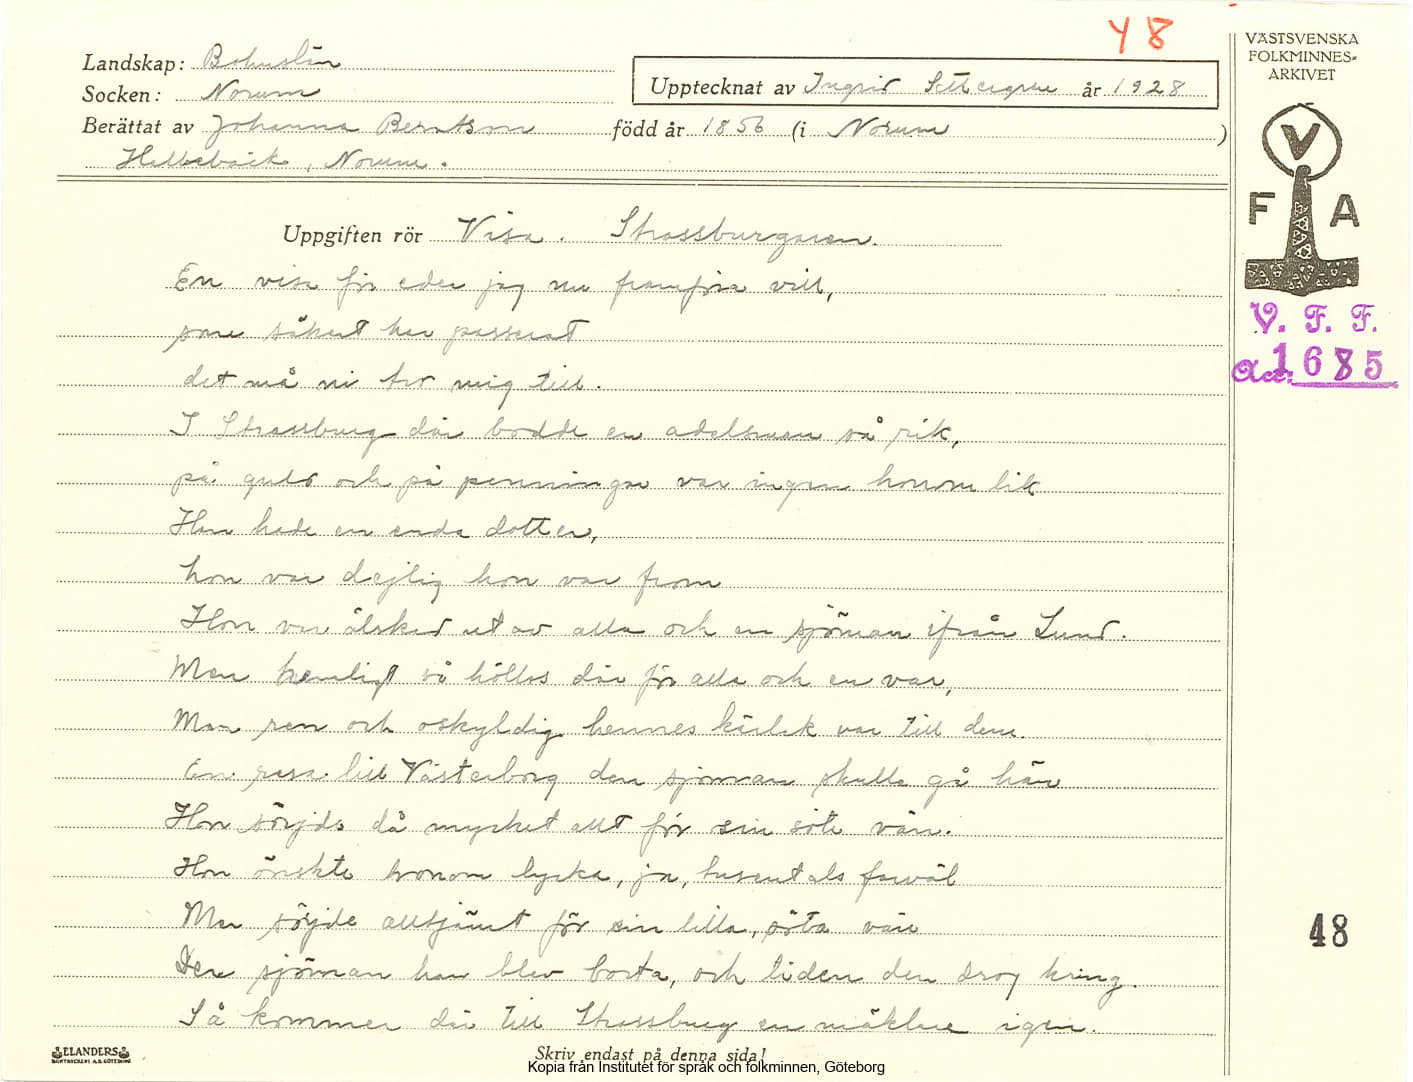 48
Landskap: Bohuslän
Socken: Norum
Upptecknat av Ingrid Settergren år 1928
Berättat av Johanna Berntson född år 1856 (i Norum)
Hallebäck, Norum.
VÄSTSVENSKA
FOLKMINNES-
ARKIVET
V
F A
V. F. F.
Acc. 1685
Uppgiften rör Visa. Strassburgaren.
En visa för eder jag nu framföra vill,
som säkert har passerat
det må ni tro mig till.
I Strassburg där bodde en adelsman så rik,
på guld och på penningar var ingen honom lik
Han hade en enda dotter,
hon var dejlig hon var from
Hon var älskad utav alla och en sjöman ifrån Lund.
Men hemligt så hölls där för alla och en var,
Men ren och oskyldig hennes kärlek var till dem.
En resa till Västerborg den sjöman skulle gå hän
Hon sörjde då mycket allt för sin söte vän.
Hon önskte honom lycka, ja, tusentals farväl
Men sörjde alltjämt för sin lilla, söta vän
Den sjöman han blev borta, och tiden den drog kring.
Så kommer där till Strassburg en mäklare igen.
48
ELANDERS
BOKTRYCKERI A.B. GÖTEBORG
Skriv endast på denna sida!
Kopia från Institutet för språk och folkminnen, Göteborg